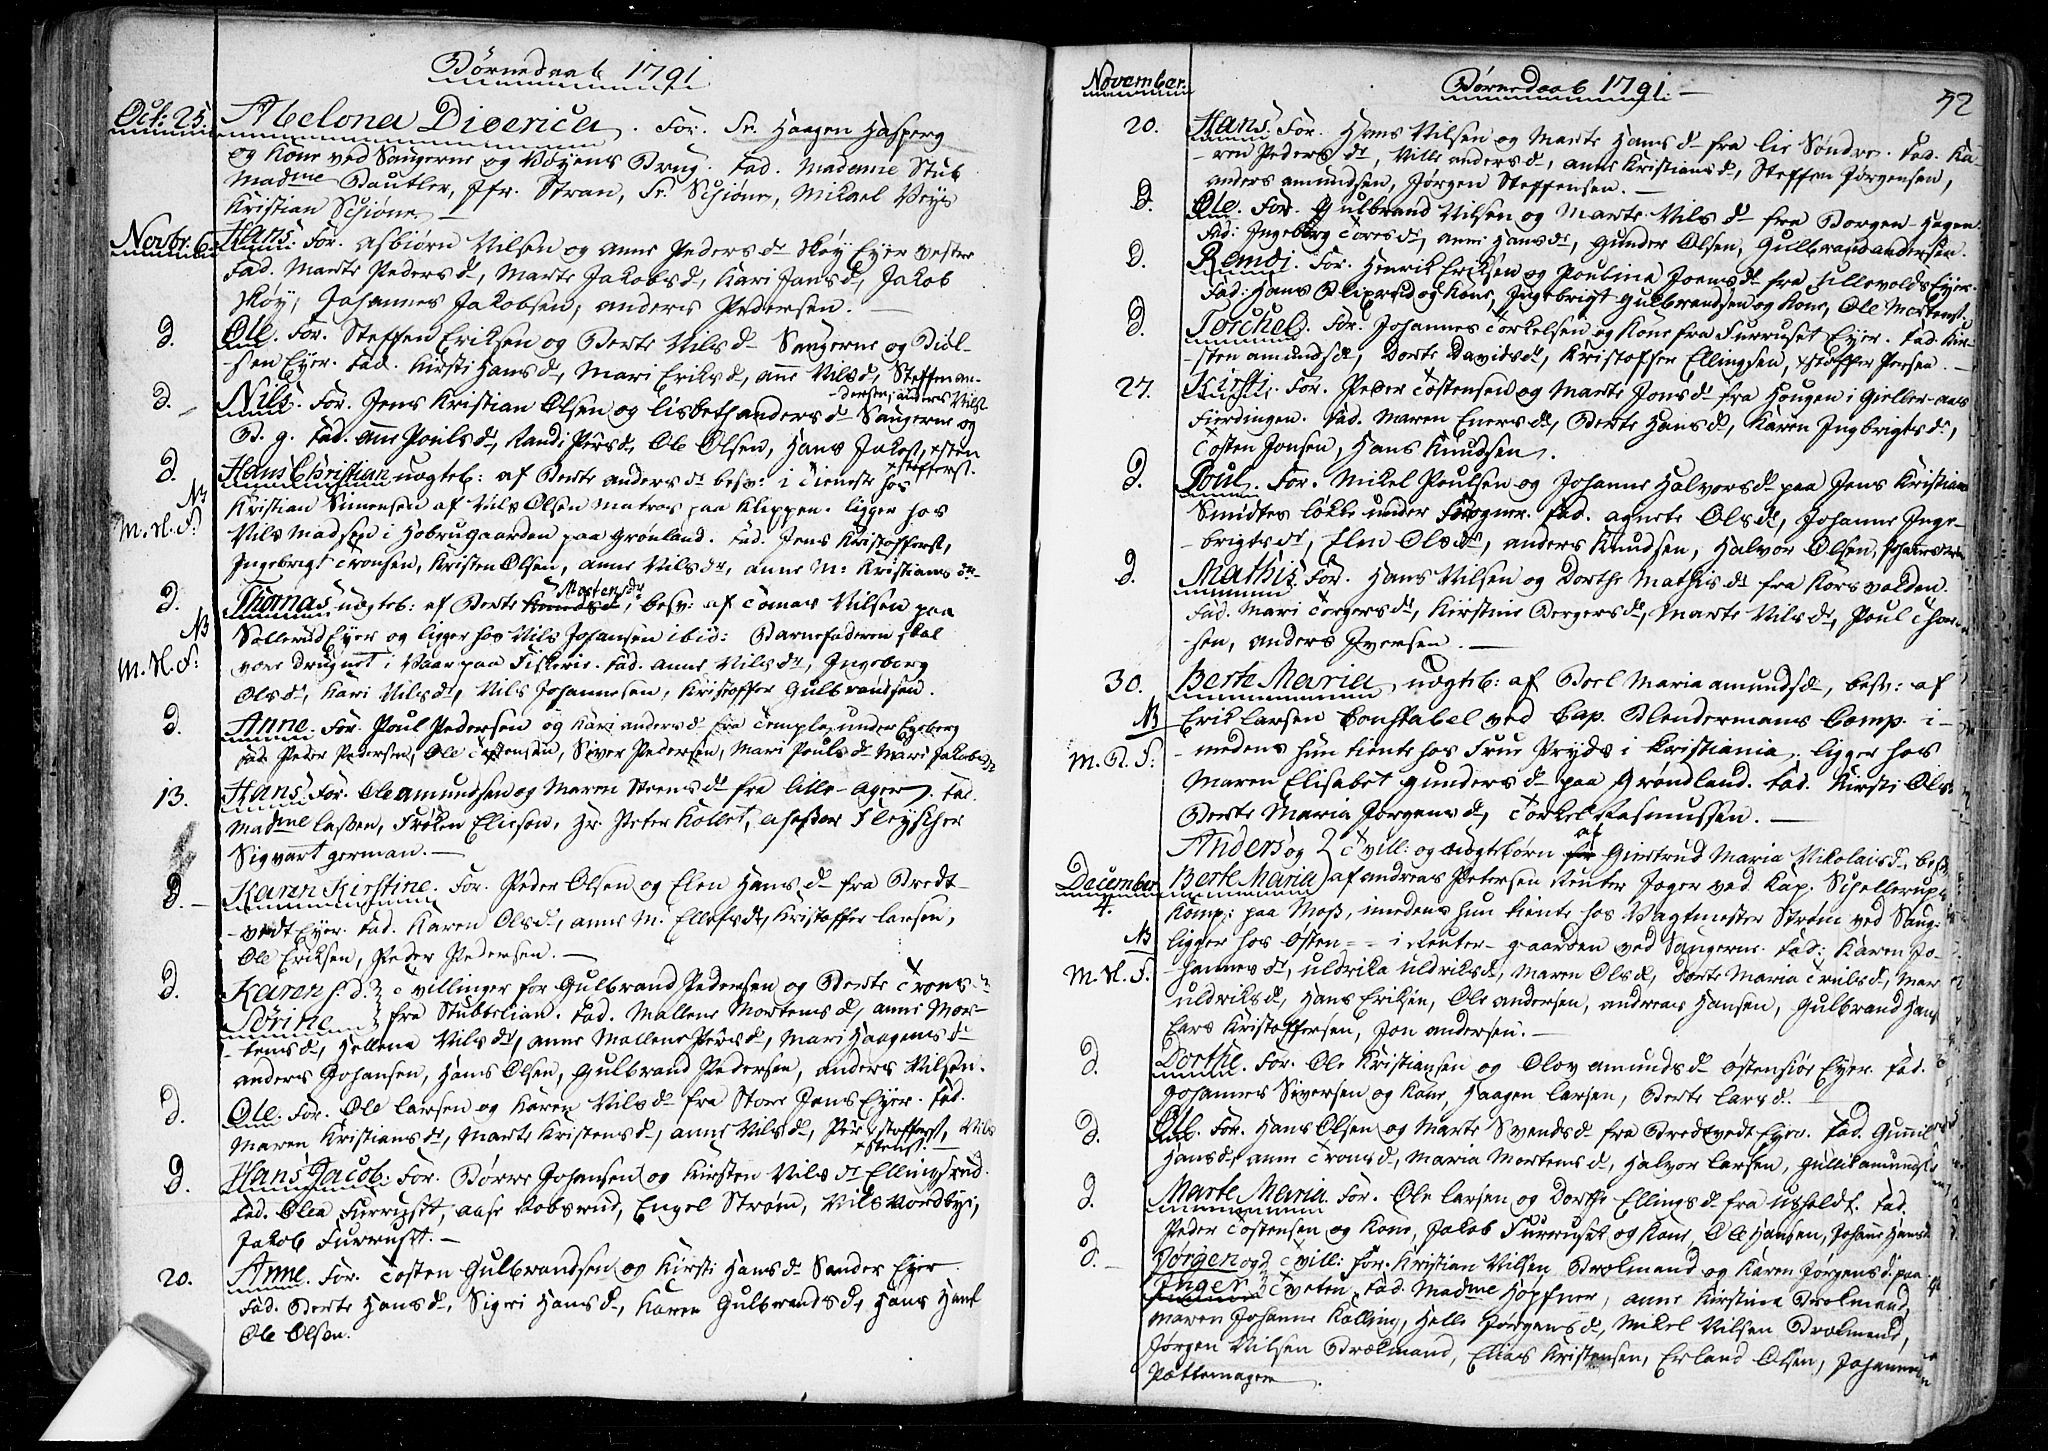 Børnedaab 1791
Oct: 25. Abelona Diderica. For. Sr. Haagen Hasperg
og Kone ved Saugerne og Vøyens Brug. Fad. Madame Stub
Madme Bautler, Jfr. Stran, Sr. Schiøne, Mikael
Kristian Schiøne.
Novbr. 6. Hans. For. Asbiørn Nilsen og Anne Peders dr Skøy Eyer vester
Fad. Marte Peders dr, Marte Jakobs dr, Kari Jans dr, Jakob
Skøy, Johannes Jakobsen, Anders Pedersen.
D. Ole. For. Steffen Eriksen og Berte Nils dr Saugerne og Biøl-
sen Eyer. Fad. Kirsti Hans dr, Mari Eriks dr, Anne Nils dr, Steffen An-
dersen, Anders Nils
D. Nils. For. Jens Kristian Olsen og Lisbeth Anders dr Saugerne og
B. g. Fad. Anne Pouls dr, Randi Pers dr, Ole Olsen, Hans Jakos, xsten
xstoffers.
D. Hans Christian uægteb: af Berte Anders dr besv: i Tieneste hos
NB Kristian Simensen af Nils Olsen Matros paa Klippen. ligger hos
M. N. F. Nils Madsen i Hobrugaarden paa Grønland. Fad. Jens Kristoffers,
Ingebrigt Tronsen, Kristen Olsen, Anne Nils dr, Anne M: Kristians dr
Mortens dr
D. Thomas uægteb: af Berte Knuds dr, besv: af Tomas Nilsen paa
NB Sollerud Eyer og ligger hos Nils Johansen ibid: Barnefaderen skal
M. N. F: være druknet i Vaar paa Fiskerie. Fad. Anne Nils dr, Ingeborg
Ols dr, Kari Nils dr, Nils Johannesen, Kristoffer Gulbrandsen.
D. Anne. For. Poul Pedersen og Kari Anders dr fra Temple under Egeberg
Fad. Peder Pedersen, Ole Tostensen, Siver Pedersen, Mari Pouls dr Mari Jakobs dr
13. Hans. For. Ole Amundsen og Maren Steens dr fra Lille-Ager. Fad.
Madme Lassen, Frøken Elieson, Hr Peter Kollet, Assessor Fleyscher
Sigvart German.
D. Karen Kirstine. For. Peder Olsen og Elen Hans dr fra Bredt-
-vedt Eyer. Fad. Karen Ols dr, Anne M. Ellefs dr, Kristoffer Larsen,
Ole Eriksen, Peder Pedersen.
D. Karen f. d. Tvillinger for Gulbrand Pedersen og Berte Trons dr
Sørine fra Stubbelian. Fad. Mallene Mortens dr, Anne Mor-
-tens dr, Hellena Nils dr, Anne Mallene Pers dr, Mari Haagens dr
Anders Johansen, Hans Olsen, Gulbrand Pedersen, Anders Nilsen.
D. Ole: For. Ole Larsen og Karen Nils dr fra Store Jens Eyer. Fad.
Maren Kristians dr, Marte Kristens dr, Anne Nils dr, Per xstoffers, Nils
xstens.
D. Hans Jacob: For. Børre Johansen og Kirsten Nils dr Ellingsrud.
Fad. Olea Furruset, Aase Robsrud, Engel Strøm, Nils Nordbye,
Jakob Furruset.
20. Anne. For. Tosten Gulbrandsen og Kirsti Hans dr Sander Eyer.
Fad. Berte Hans dr, Sigri Hans dr, Karen Gulbrands dr, Hans Hans
Ole Olsen.
November.
Børnedaab 1791.
52
20. Hans. For. Hans Nilsen og Marte Hans dr fra Lie Søndre. Fad. Ka-
-ren Peders dr, Nille Anders dr, Anne Kristians dr, Steffen Jørgensen,
Anders Amundsen, Jørgen Steffensen.
D. Ole. For. Gulbrand Nilsen og Marte Nils dr fra Borgen Hagen
Fad: Ingeborg Tores dr, Anne Hans dr, Gunder Olsen, Gulbrand Andersen.
D. Remdi. For. Henrik Eriksen og Poulina Joens dr fra Ullevolds Eyer.
Fad: Hans Blixrud og Kone, Ingebrigt Gulbrandsen og Kone, Ole Mortens.
D. Torchel. For. Johannes Torkelsen og Kone fra Furruset Eyer. Fad. Kir-
-sten Amunds dr, Dorte Davids dr, Kristoffer Ellingsen, xstoffer Persen.
27. Kirsti. For. Peder Tostensen og Marte Jons dr fra Hougen i Gieller-aas
Fierdingen. Fad. Maren Eners dr, Berte Hans dr, Karen Ingbrigts dr,
Tosten Jonsen, Hans Knudsen.
D. Poul. For. Mikel Poulsen og Johanne Halvors dr paa Jens Kristian
Smidtes Løkke under Frogner. Fad. Agnete Ols dr, Johanne Inge-
-brigts dr, Elen Ols dr, Anders Knudsen, Halvor Olsen,
D. Mathis. For. Hans Nilsen og Dorthe Mathis dr fra Korsvolden.
Fad. Mari Torgers dr, Kirstine Bergers dr, Marte Nils dr, Poul
-sen, Anders Iversen.
30. Berte Maria uægteb: af Boel Maria Amunds dr, besv: af
NB Erik Larsen Constabel ved Cap. Blendermans Comp. i-
-medens hun tiente hos Frue Pryds i Kristiania, ligger hos
M. B. F: Maren Elisabet Gunders dr paa Grøndland. Fad. Kirsti Ols
Berte Maria Jørgens dr, Torkel Rasmussen.
Anders og Tvill: og uægtebørn for af Giertrud Maria Nikolais dr, besv
December 4. Berte Maria af Andreas Petersen Reuter Jæger ved Kap. Schellerups
Komp: paa Moss, imedens hun tiente hos Vagtmester Strøm ved Saug.
NB ligger hos Osten - - i Reuter-gaarden ved Saugerne. Fad: Karen Jo-
M. N. F. -hannes dr, Uldrika Uldriks dr, Maren Ols dr, Dorte Maria Truls dr, Mar
Uldriks dr, Hans Eriksen, Ole Andersen, Andreas Hansen, Gulbrand Hans
Lars Kristoffersen, Jon Andersen.
D. Dorthe. For. Ole Kristiansen og Olov Amunds dr Østensiøe Eyer. Fad.
Johannes Siversen og Kone, Haagen Larsen, Berte Lars dr.
D. Ole. For. Hans Olsen og Marte Svends dr fra Bredtvedt Eyer. Fad. Gunnil
Hans dr, Anne Trons dr, Maria Mortens dr, Halvor Larsen, Gullik Amunds
D. Marte Maria. For. Ole Larsen og Dorthe Ellings dr fra Ulsholt. Fad.
Peder Tostensen og Kone, Jakob Furruset og Kone, Ole Hansen, Johanne Hans dr
D. Jørgen og Tvill: For. Kristian Nilsen Brolmand og Karen Jørgens dr paa
Inger Tveten, Fad. Madme Høpfner, Anne Kirstine Brolmand,
Maren Johanne Kolling, Helle Jørgens dr, Mikel Nilsen Brolmand,
Jørgen Nilsen Brolmand, Elias Kristensen, Erland Olsen, Johannes
Pottemager.